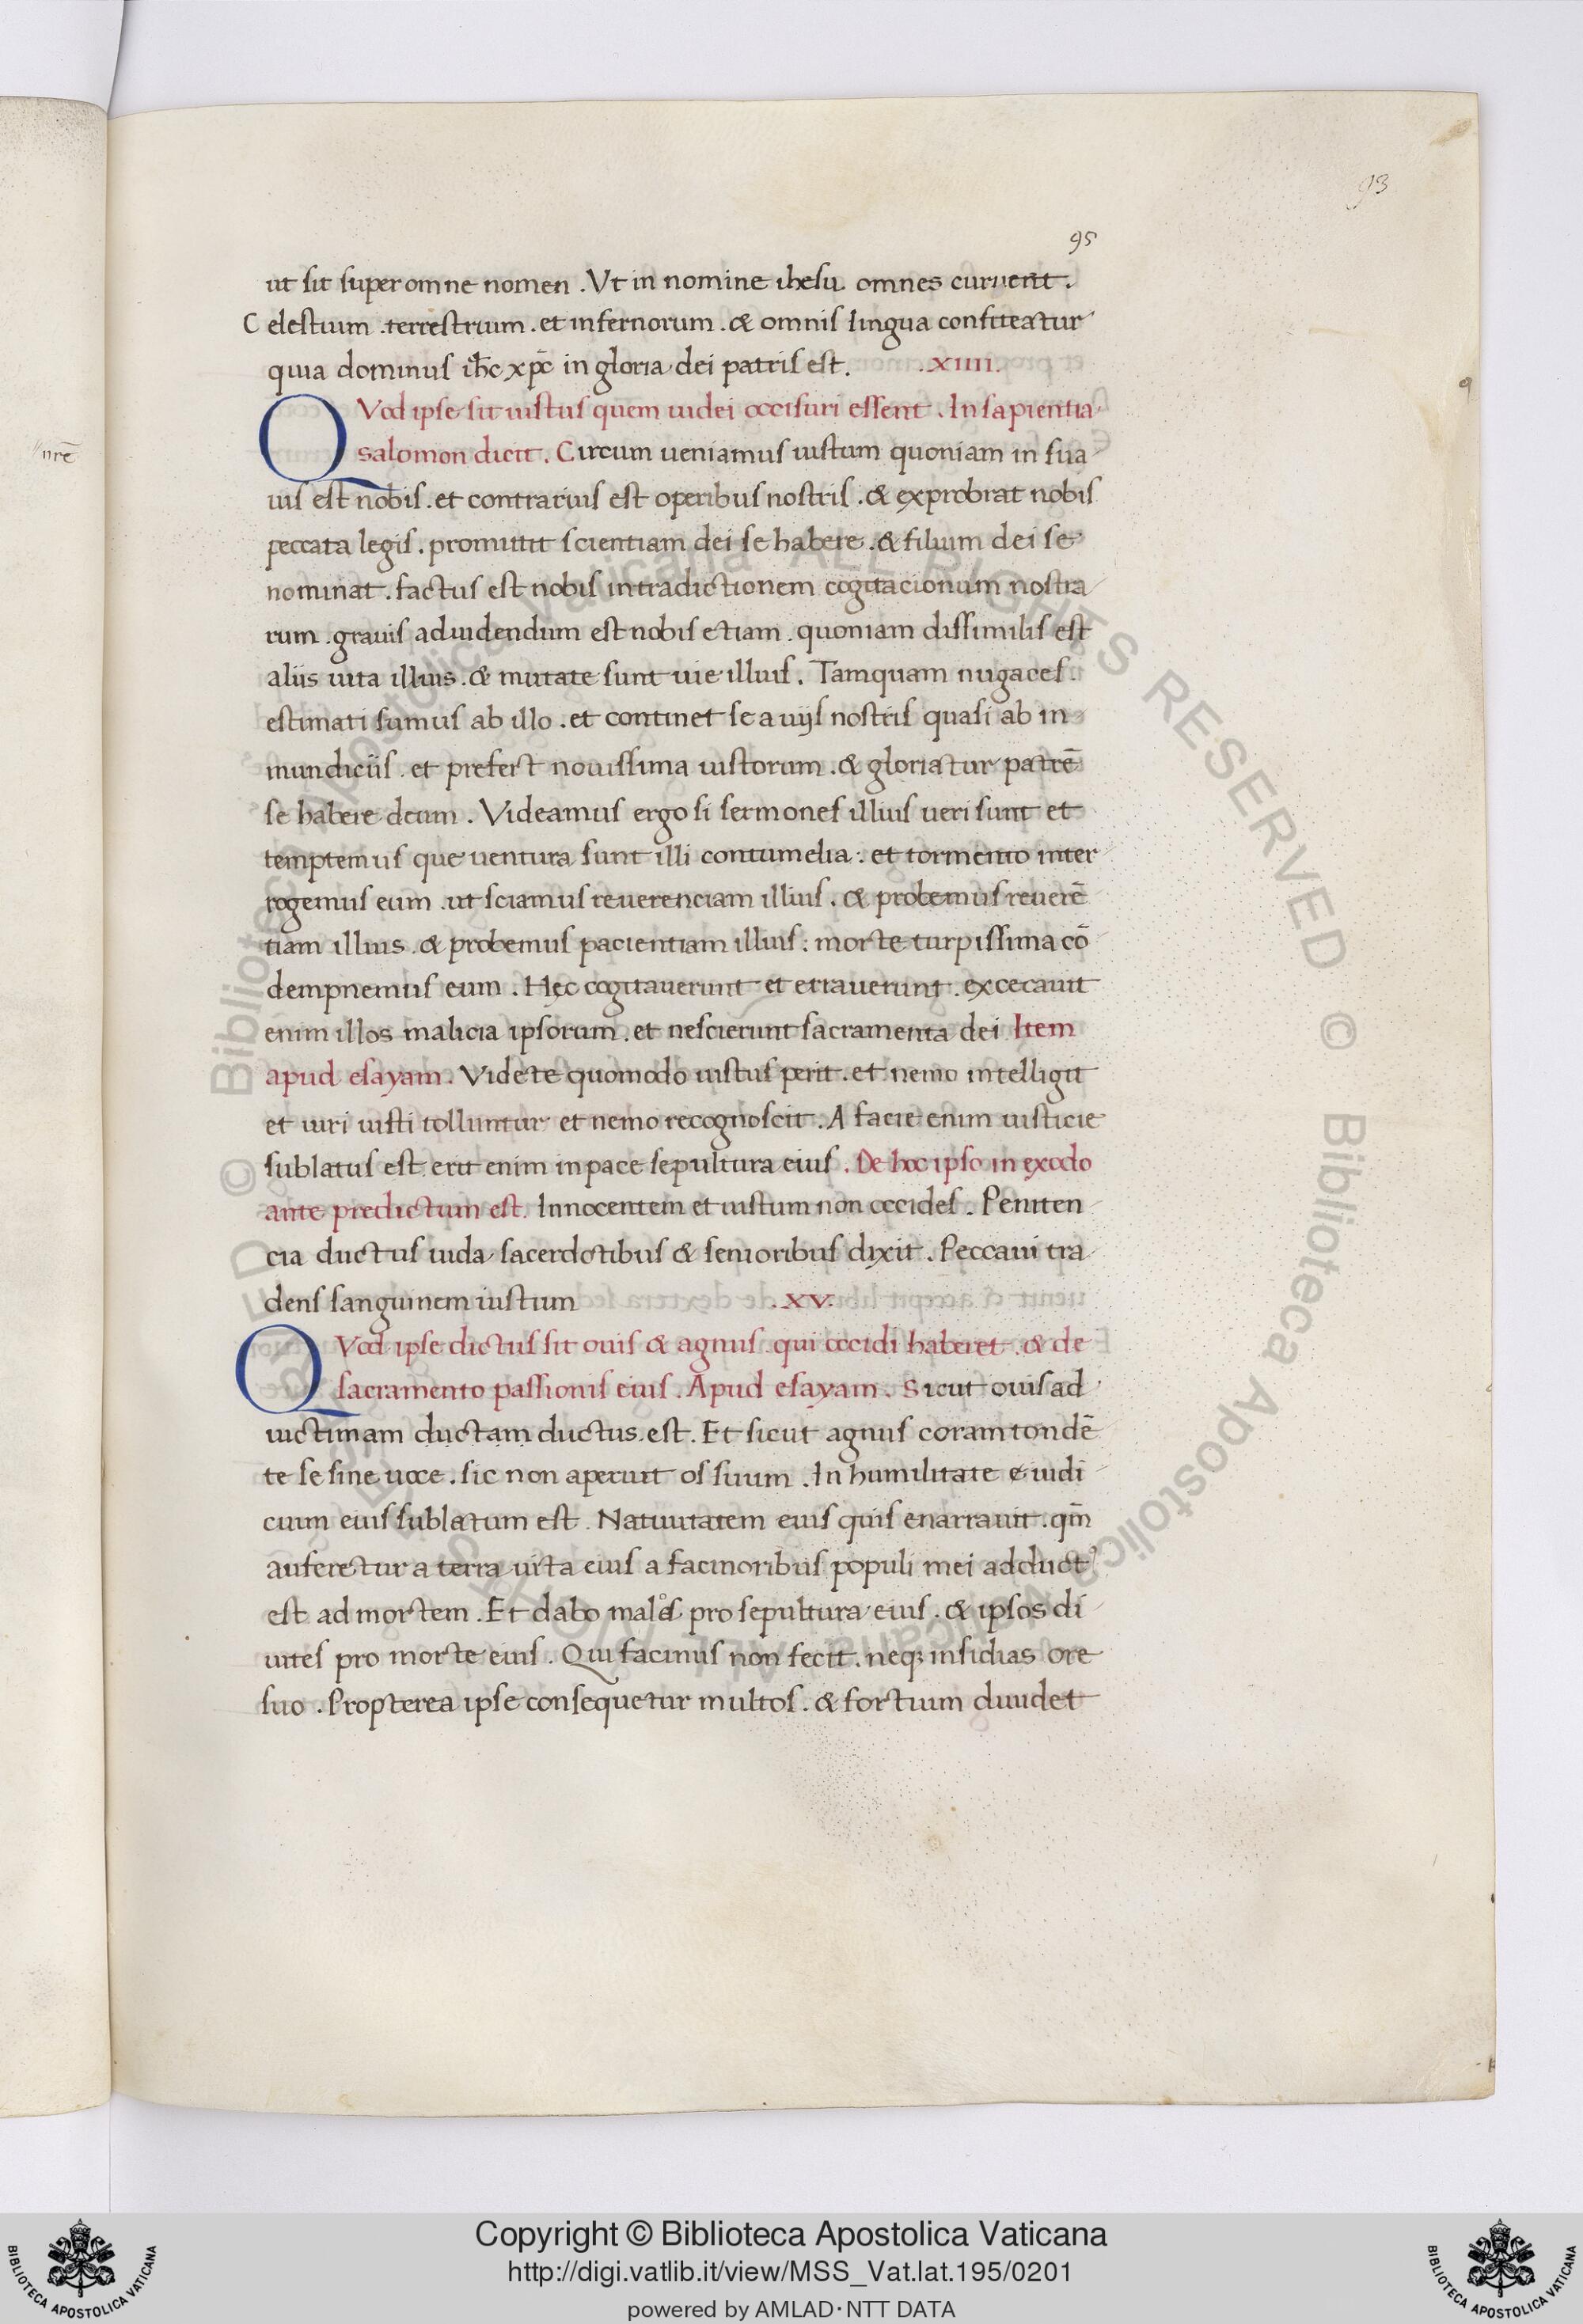 93
95
ut sit super omne nomen . Vt in nomine ihesu omnes curuent .
Celestium . terrestrium . et infernorum . & omnis lingua confiteatur
quia dominus ih̅c xp̅c in gloria dei patris est . .XIIII.
QVod ipse sit iustus quem iudei occisuri essent . In sapientia
salomon dicit . Circum ueniamus iustum quoniam in sua
uis est nobis . et contrarius est operibus nostris . & exprobrat nobis
peccata legis . promittit scientiam dei se habere . & filium dei se
nominat . factus est nobis intradictionem cogitacionum nostra
rum . grauis aduidendum est nobis etiam . quoniam dissimilis est
aliis uita illius . & mutate sunt uie illius . Tamquam nugaces .
estimati sumus ab illo . et continet se a uijs nostris quasi ab in
mundiciis . et prefert nouissima iustorum . & gloriatur patrē
se habere deum . Videamus ergo si sermones illius ueri sunt et
temptemus que uentura sunt illi contumelia : et tormento inter
rogemus eum . ut sciamus reuerenciam illius . & probemus reuerē
tiam illius . & probemus pacientiam illius : morte turpissima cō
dempnemus eum . Hęc cogitauerunt et errauerunt . excecauit
enim illos malicia ipsorum . et nescierunt sacramenta dei Item
apud esayam . Videte quomodo iustus perit . et nemo intelligit
et uiri iusti tolluntur et nemo recognoscit . A facie enim iusticie
sublatus est erit enim in pace sepultura eius . De hoc ipso in exodo
ante predictum est . Innocentem et iustum non occides . Peniten
cia ductus iuda sacerdotibus & senioribus dixit . Peccaui tra
dens sanguinem iustum .XV.
QVod ipse dictus sit ouis & agnus . qui occidi haberet . & de
sacramento passionis eius . Apud esayam . Sicut ouis ad
uictimam ductam ductus est . Et sicut agnus coram tondē
te se sine uoce . sic non aperuit os suum . In humilitate e iudi
cium eius sublatum est . Natiuitatem eius quis enarrauit . qm̅
auferetur a terra uita eius a facinoribus populi mei adduct᾽
est ad mortem . Et dabo malos pro sepultura eius . & ipsos di
uites pro morte eius . Qui facinus non fecit . neq; insidias ore
suo . Propterea ipse consequetur multos . & fortium diuidet
nrē
© Biblioteca Apostolica Vaticana ALL RIGHTS RESERVED
Copyright © Biblioteca Apostolica Vaticana
http://digi.vatlib.it/view/MSS_Vat.lat.195/0201
powered by AMLAD·NTT DATA
BIBLIOTECA APOSTOLICA VATICANA
BIBLIOTECA APOSTOLICA VATICANA